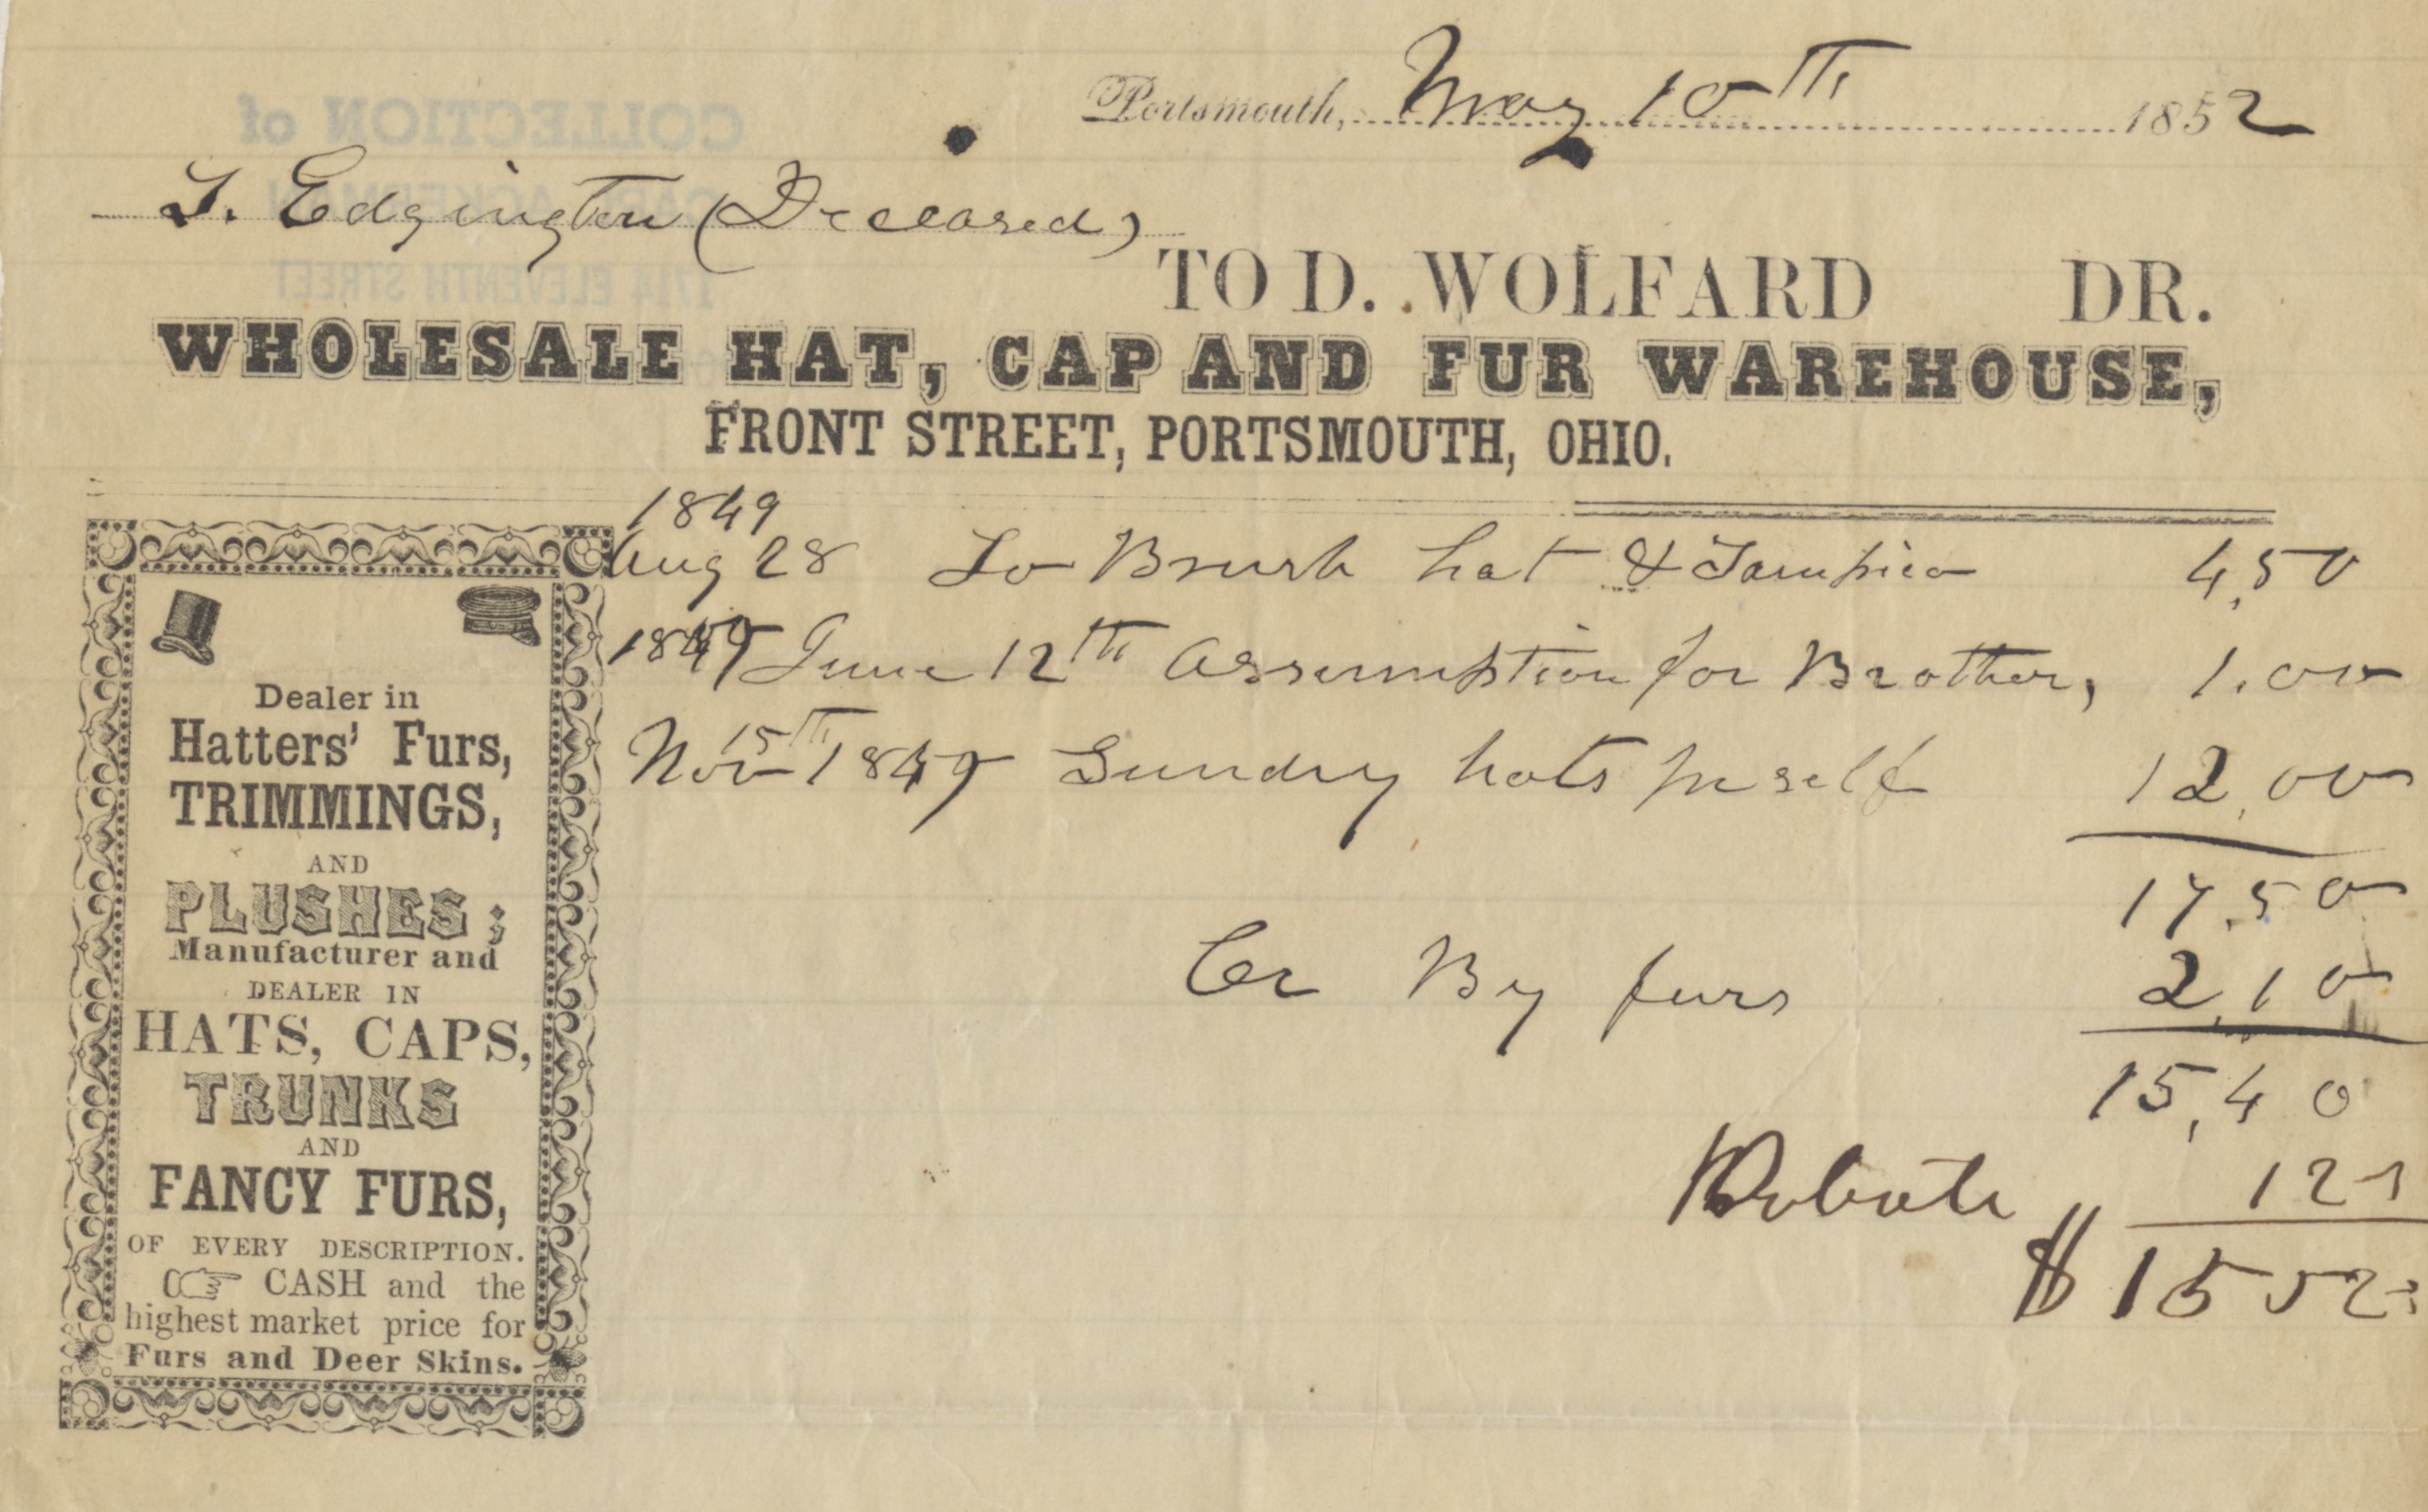 Portsmouth, May 10th 1852
T. Edgington (Deceased)
TO D. WOLFARD DR.
WHOLESALE HAT, CAP AND FUR WAREHOUSE,
FRONT STREET, PORTSMOUTH, OHIO.
1849
Aug 28 To Brush hat & Tampico 4,50
1849 June 12th Assumption for Brother, 1.00
Nov 15th 1849 Sundry hats pr self 12,00
17.50
Cr By furs 2,10
15,40
Probate 12
$ 15 52
Dealer in
Hatters' Furs,
TRIMMINGS,
AND
PLUSHES;
Manufacturer and
DEALER IN
HATS, CAPS,
TRUNKS
AND
FANCY FURS,
OF EVERY DESCRIPTION.
CASH and the
highest market price for
Furs and Deer Skins.
COLLECTION of
1714 ELEVENTH STREET